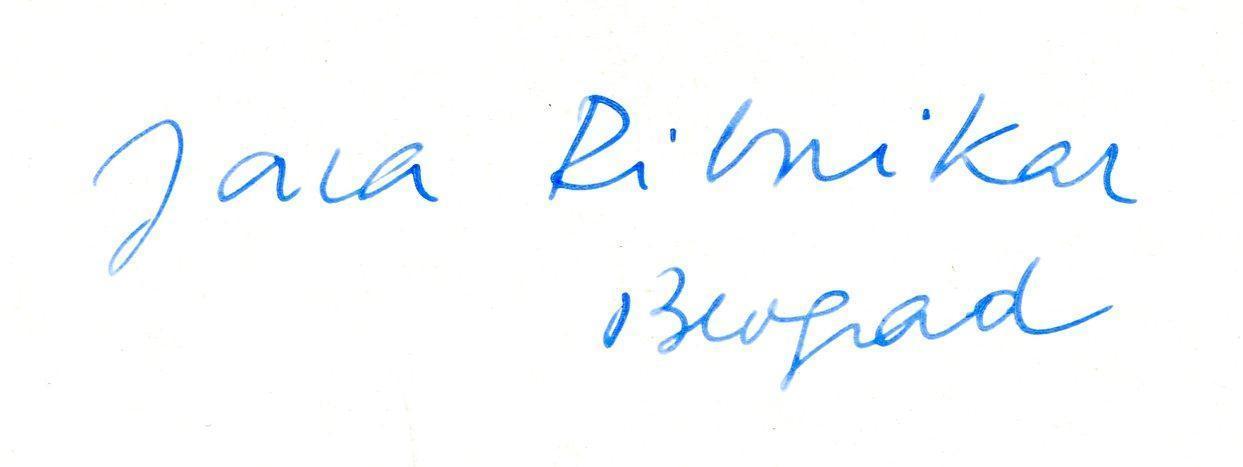 Jara Ribnikar
Beograd